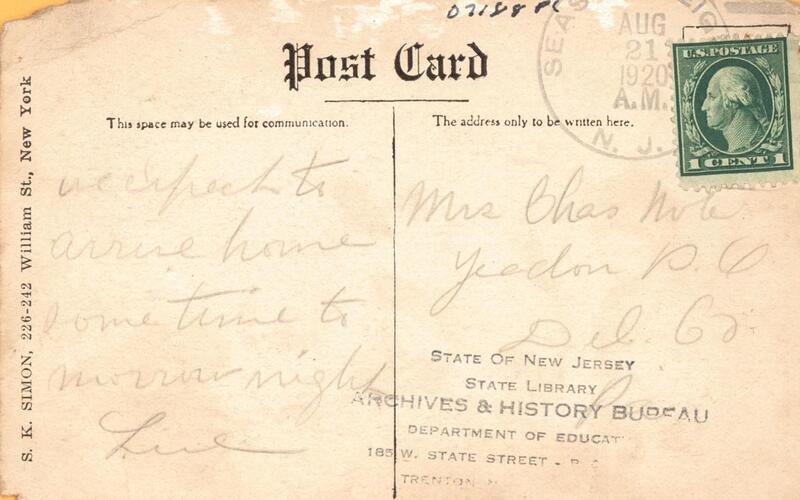 07188 PC
AUG
21
1920
A.M.
N. J.
U.S. POSTAGE
1 CENT 1
Post Card
This space may be used for communication.
The address only to be written here.
S. K. SIMON, 226-242 William St., New York
we expect to
arrive home
some time to
morrow night
Mrs Chas
Yeadon P. O
Del. Co.
Pa
STATE OF NEW JERSEY
STATE LIBRARY
ARCHIVES & HISTORY BUREAU
DEPARTMENT OF EDUCAT
185 W. STATE STREET -
TRENTON